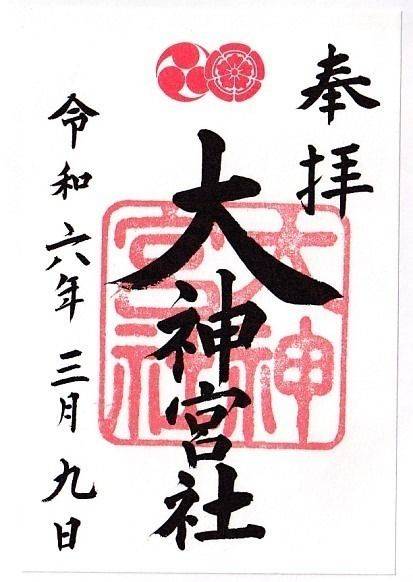 奉拝
大神宮社
大神宮社
令和六年三月九日